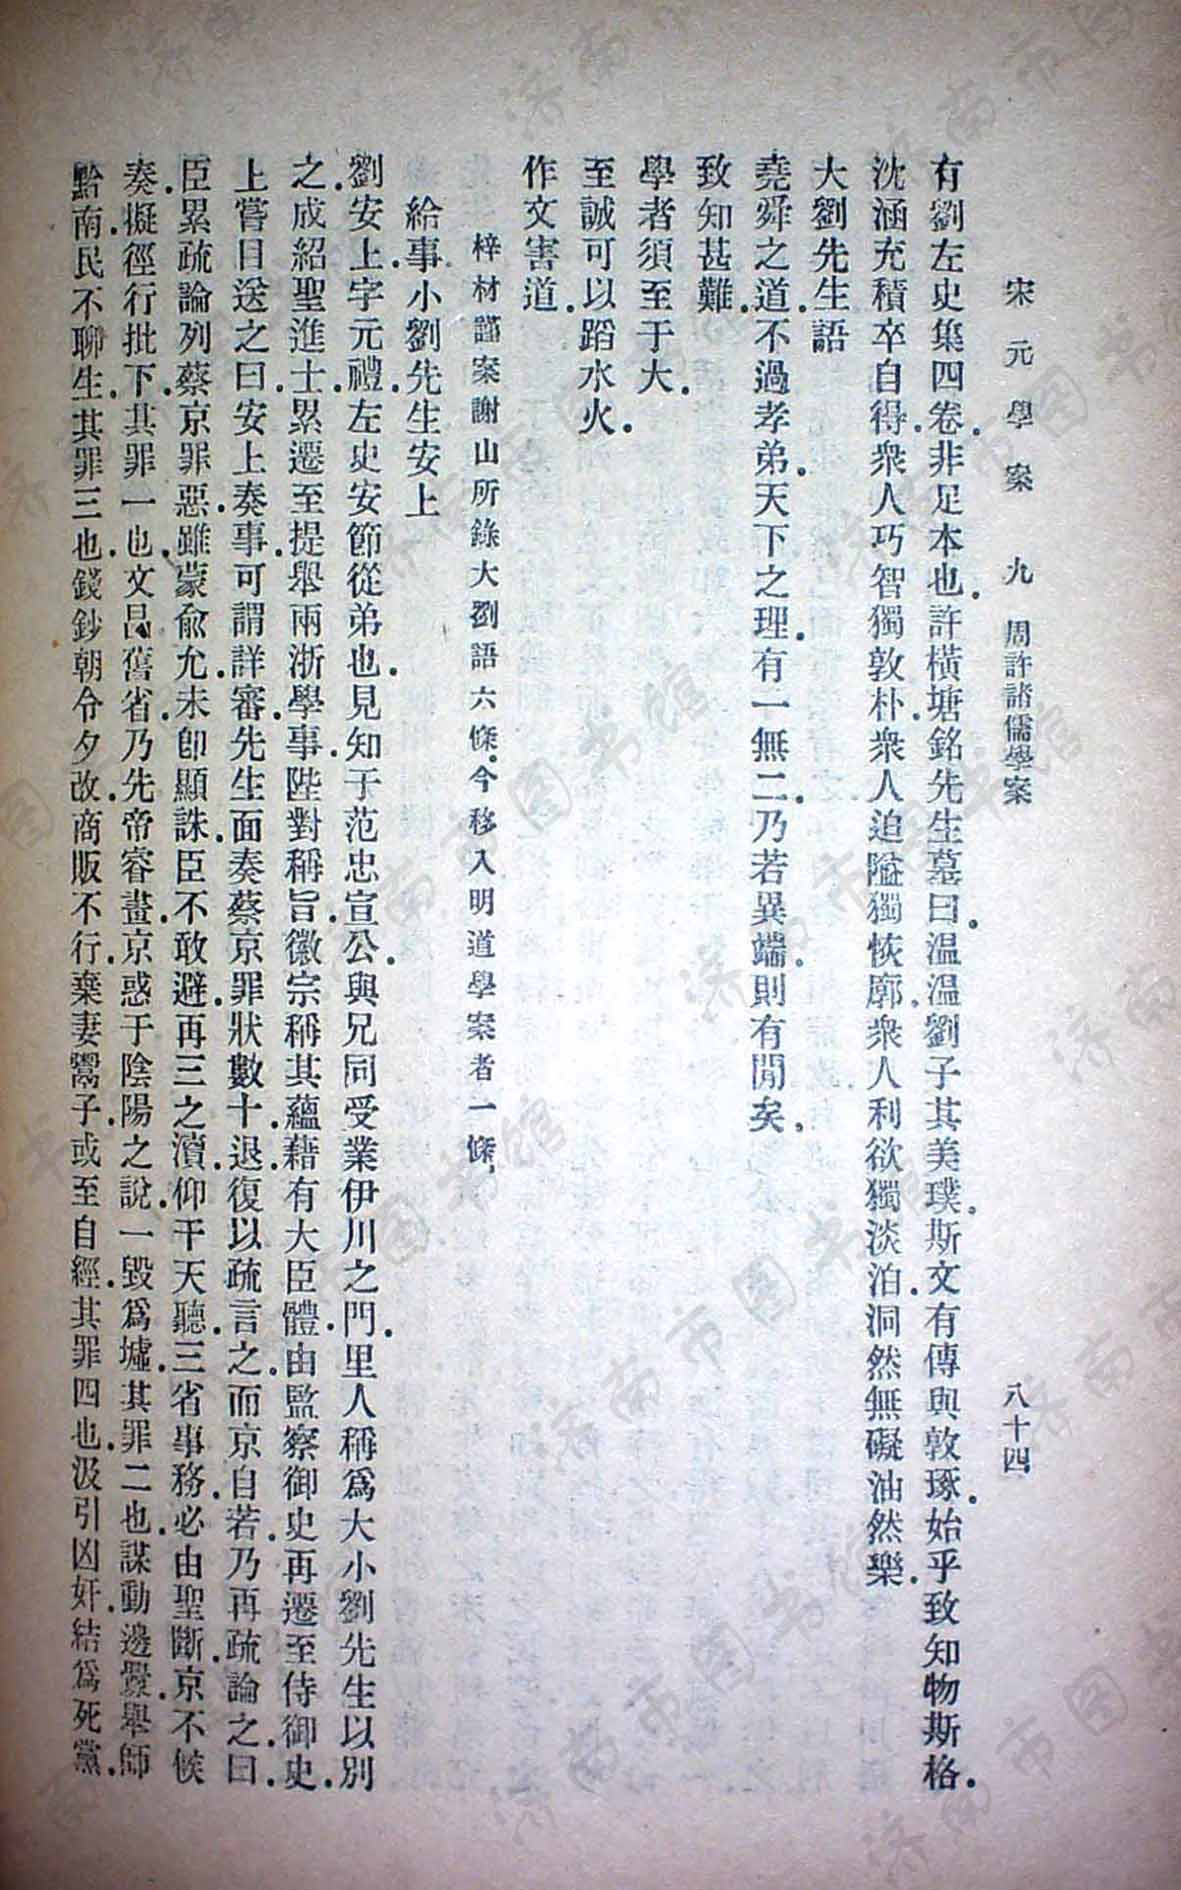 宋元學案 九 周許諸儒學案 八十四
有劉左史集四卷.非足本也.許橫塘銘先生墓曰.溫溫劉子.其美璞.斯文有傳.與敦琢.始乎致知.物斯格.
沈涵充積.卒自得.衆人巧智.獨敦朴.衆人迫隘.獨恢廓.衆人利欲.獨淡泊.洞然無礙.油然樂.
大劉先生語
堯舜之道.不過孝弟.天下之理.有一無二.乃若異端.則有閒矣.
致知甚難.
學者須至于大.
至誠可以蹈水火.
作文害道.
梓材謹案謝山所錄大劉語六條.今移入明道學案者一條.
給事小劉先生安上
劉安上.字元禮.左史安節從弟也.見知于范忠宣公.與兄同受業伊川之門.里人稱爲大小劉先生以別
之.成紹聖進士.累遷至提舉兩浙學事.陛對稱旨.徽宗稱其蘊藉有大臣體.由監察御史再遷至侍御史.
上嘗目送之曰.安上奏事.可謂詳審.先生面奏蔡京罪狀數十.退復以疏言之.而京自若.乃再疏論之曰.
臣累疏論列蔡京罪惡.雖蒙俞允.未卽顯誅.臣不敢避再三之瀆.仰干天聽.三省事務.必由聖斷.京不候
奏擬.徑行批下.其罪一也.文昌舊省.乃先帝睿畫.京惑于陰陽之說.一毀爲墟.其罪二也.謀動邊釁.舉師
黔南.民不聊生.其罪三也.錢鈔朝令夕改.商販不行.棄妻鬻子.或至自經.其罪四也.汲引凶奸.結爲死黨.